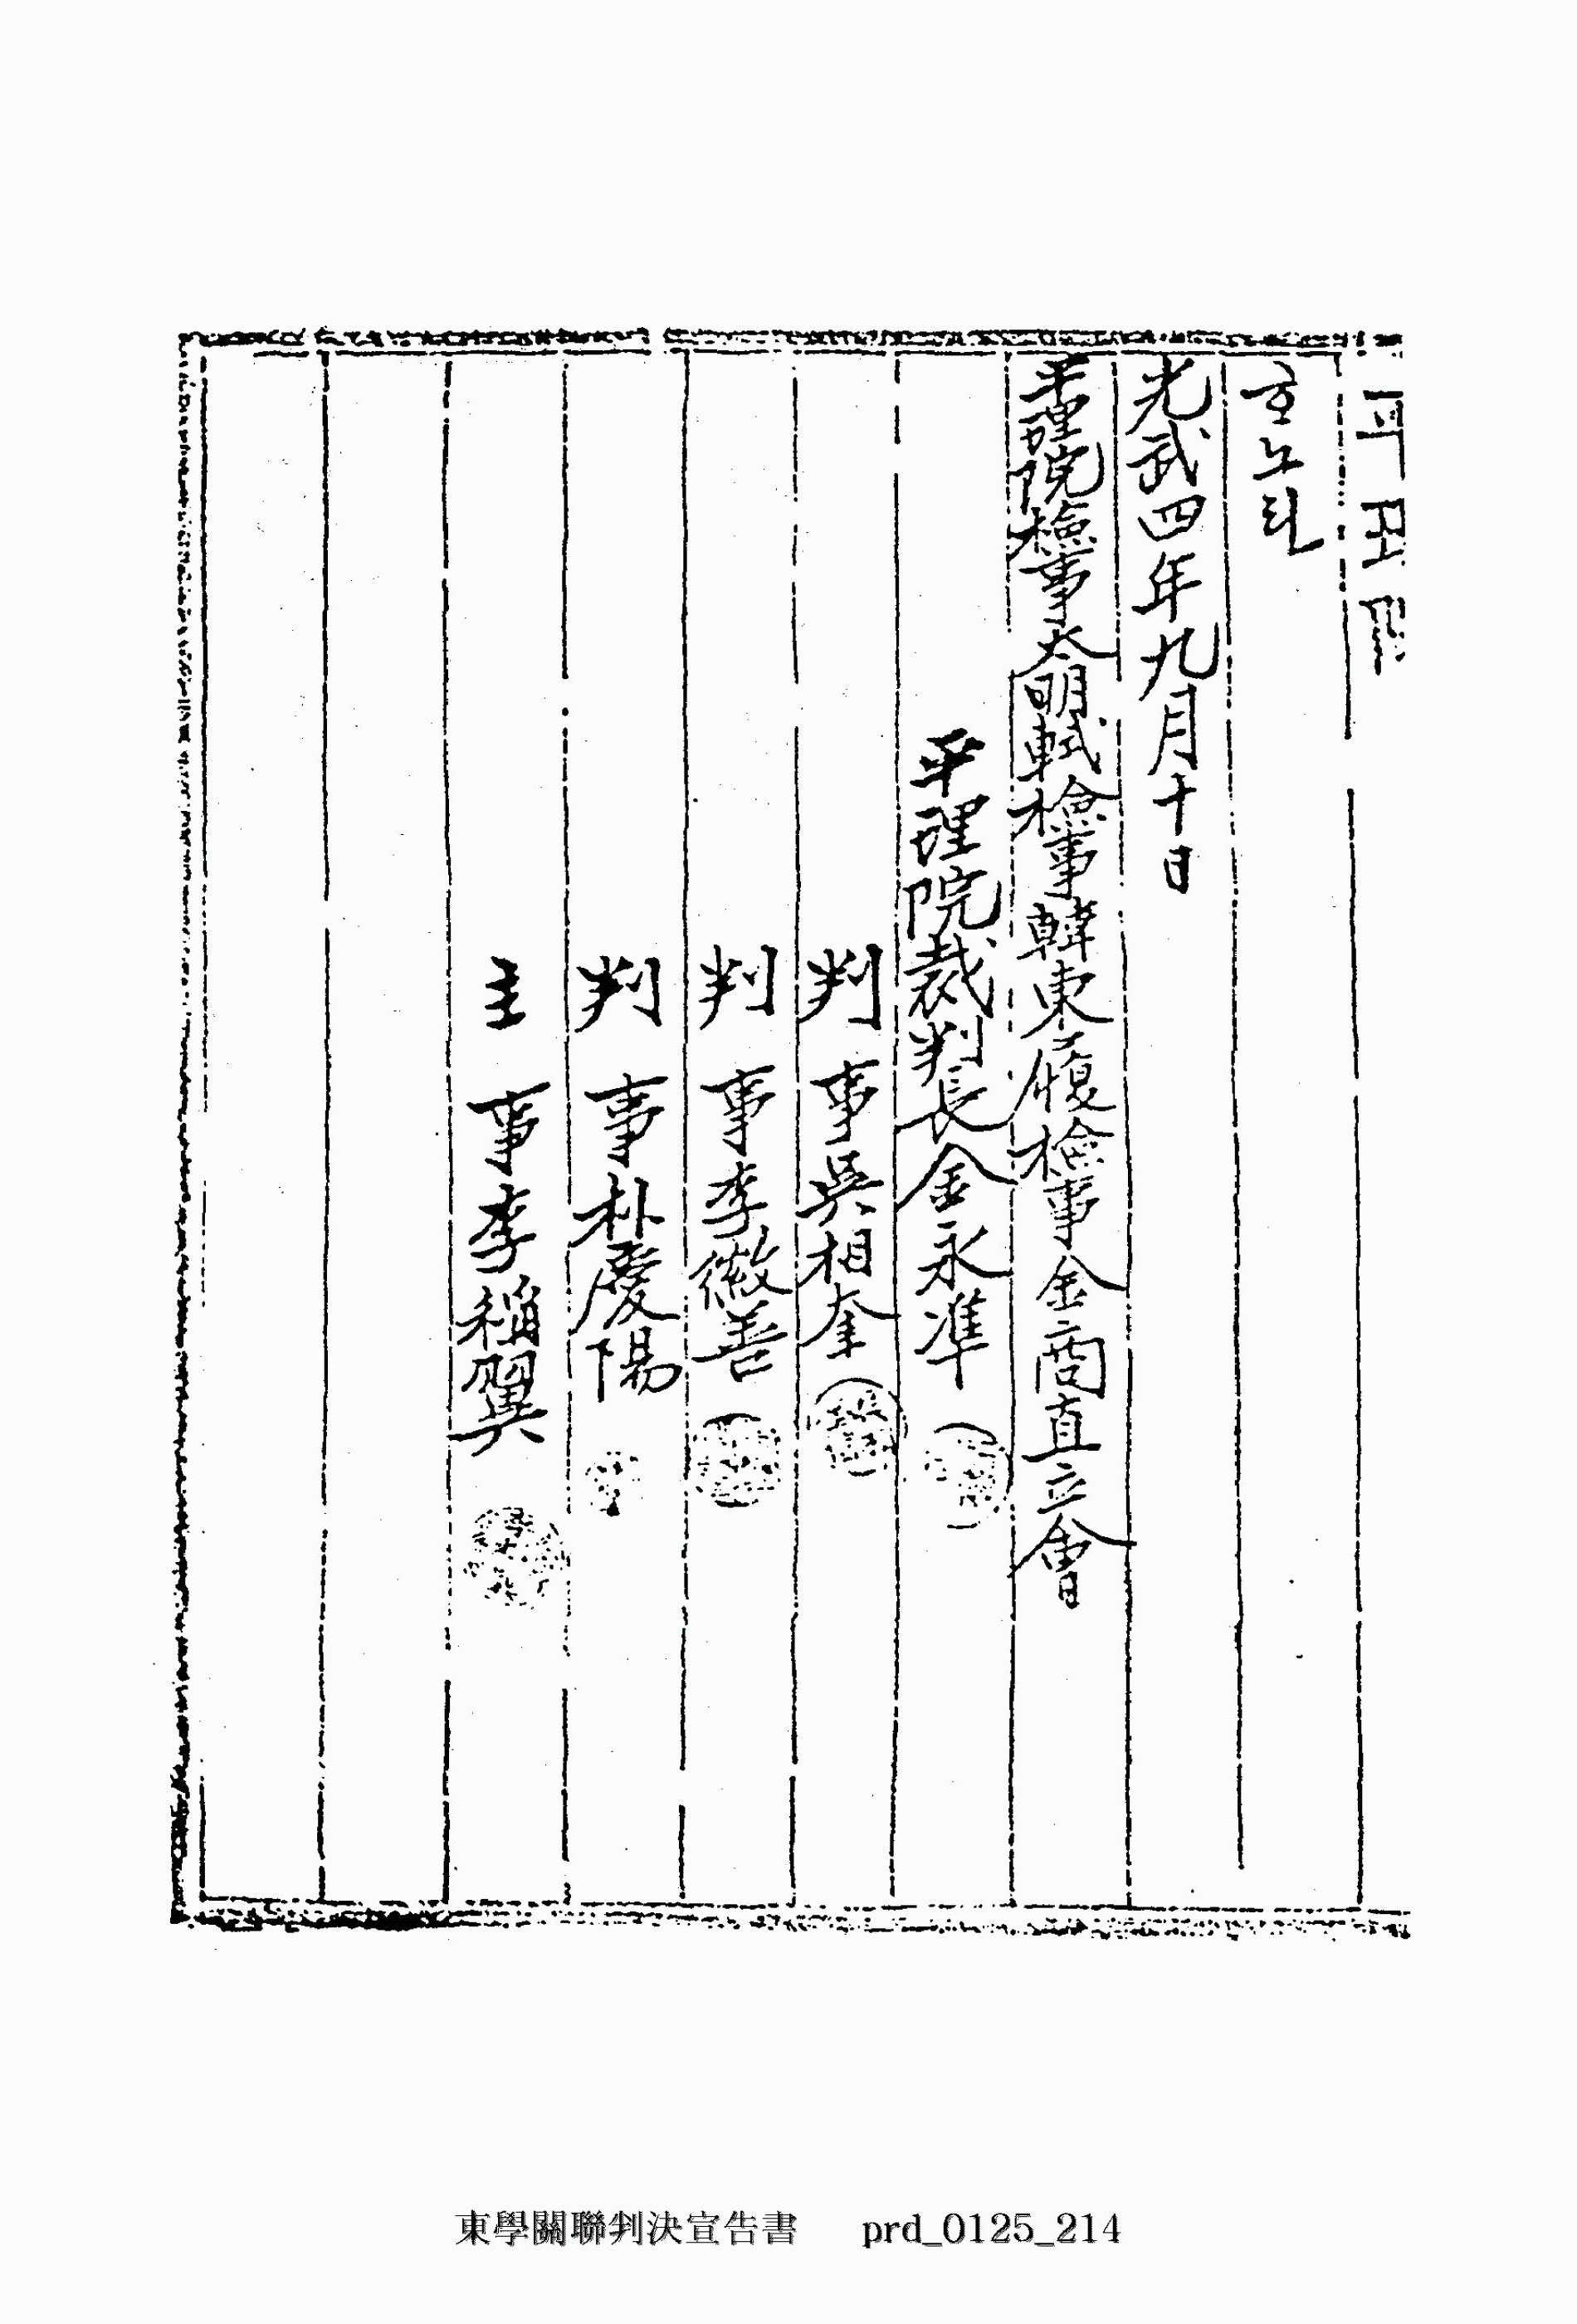 平理院
호노라
光武四年九月十日
平理院檢事太明軾檢事韓東履檢事金商直立會
平理院裁判長金永準
判事吳相奎
判事李徽善
判事朴慶陽
主事李稱翼
東學關聯判決宣告書 prd_0125_214